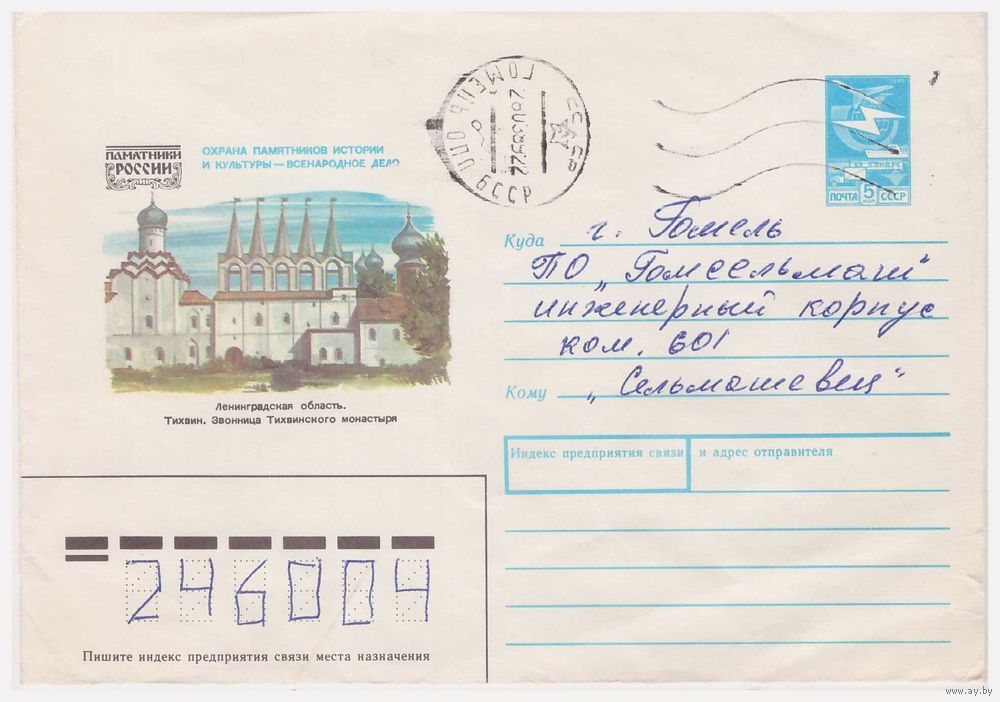 ПАМЯТНИКИ
РОССИИ
ОХРАНА ПАМЯТНИКОВ ИСТОРИИ
И КУЛЬТУРЫ — ВСЕНАРОДНОЕ ДЕЛО
Ленинградская область.
Тихвин. Звонница Тихвинского монастыря
ГОМЕЛЬ
БССР
ПОЧТА 5 КОП СССР
Куда г. Гомель
ПО „Гомсельмаш"
инженерный корпус
ком. 601
Кому „Сельмашевец"
Индекс предприятия связи и адрес отправителя
246004
Пишите индекс предприятия связи места назначения
www.ay.by